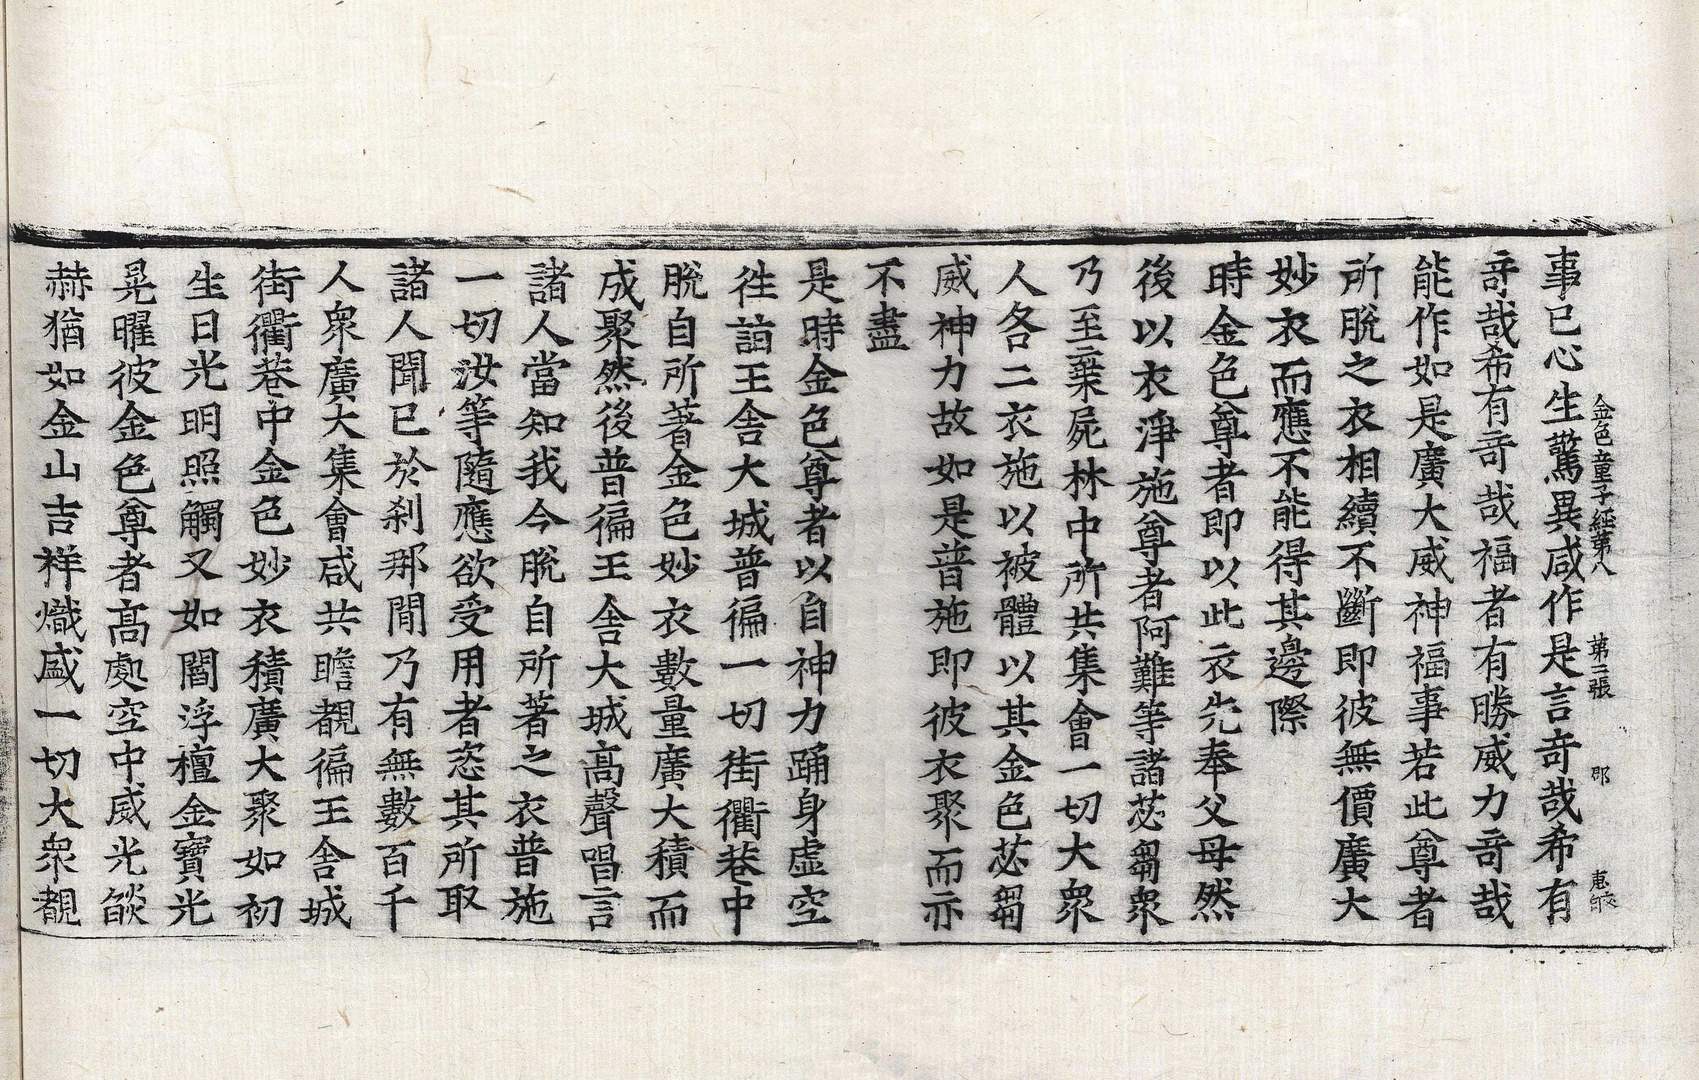 金色童子經第八 第三張 郡
事已心生驚異咸作是言竒哉希有
竒哉希有竒哉福者有勝威力竒哉
能作如是廣大威神福事若此尊者
所脫之衣相續不斷即彼無價廣大
妙衣而應不能得其邊際
時金色尊者即以此衣先奉父母然
後以衣淨施尊者阿難等諸苾芻衆
乃至棄屍林中所共集會一切大衆
人各二衣施以被體以其金色苾芻
威神力故如是普施即彼衣聚而亦
不盡
是時金色尊者以自神力踊身虛空
徃詣王舍大城普徧一切街衢巷中
脫自所著金色妙衣數量廣大積而
成聚然後普徧王舍大城高聲唱言
諸人當知我今脫自所著之衣普施
一切汝等隨應欲受用者恣其所取
諸人聞已於刹那閒乃有無數百千
人衆廣大集會咸共瞻覩徧王舍城
街衢巷中金色妙衣積廣大聚如初
生日光明照觸又如閻浮檀金寶光
晃曜彼金色尊者高處空中威光燄
赫猶如金山吉祥熾盛一切大衆覩